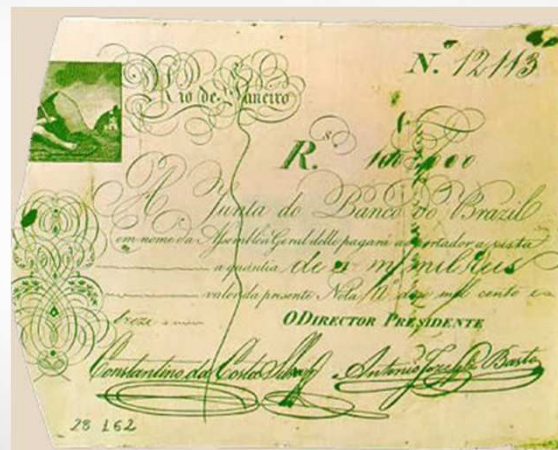 N. 12113
Rio de Janeiro
R.s
A Junta do Banco do Brazil
em nome da Assemblea Geral delle pagará ao portador a vista
a quantia de
mil Reis
valor da presente Nota N doze mil cento e
treze
O DIRECTOR PRESIDENTE
Constantino da Costa Antonio Joze Basto
28 162